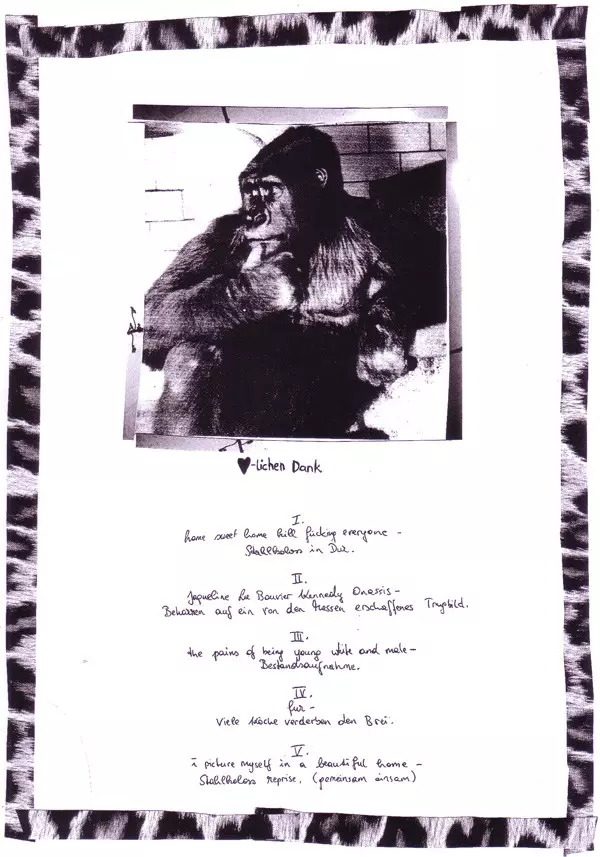 ♥-lichen Dank
I.
home sweet home kill fucking everyone –
Stahlkoloss in Dur.
II.
Jaqueline Lee Bouvier Kennedy Onassis –
Beharren auf ein von den Massen erschaffenes Trugbild.
III.
the pains of being young white and male –
Bestandsaufnahme.
IV.
fur –
Viele Köche verderben den Brei.
V.
i picture myself in a beautiful home –
Stahlkoloss reprise. (gemeinsam einsam)